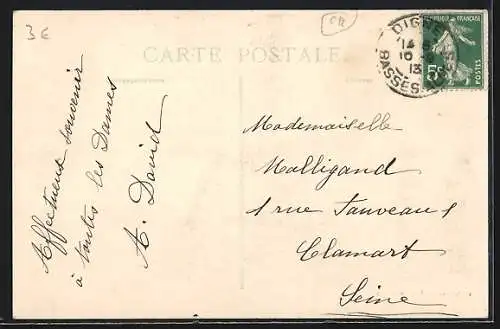 3€
CR
CARTE POSTALE
DIGNE
14
10
13
BASSES-ALPES
RÉPUBLIQUE FRANÇAISE
5c
POSTES
Affectueux souvenir
à toutes les Dames
A. David
Mademoiselle
Malligand
1 rue Fauveau 1
Clamart
Seine